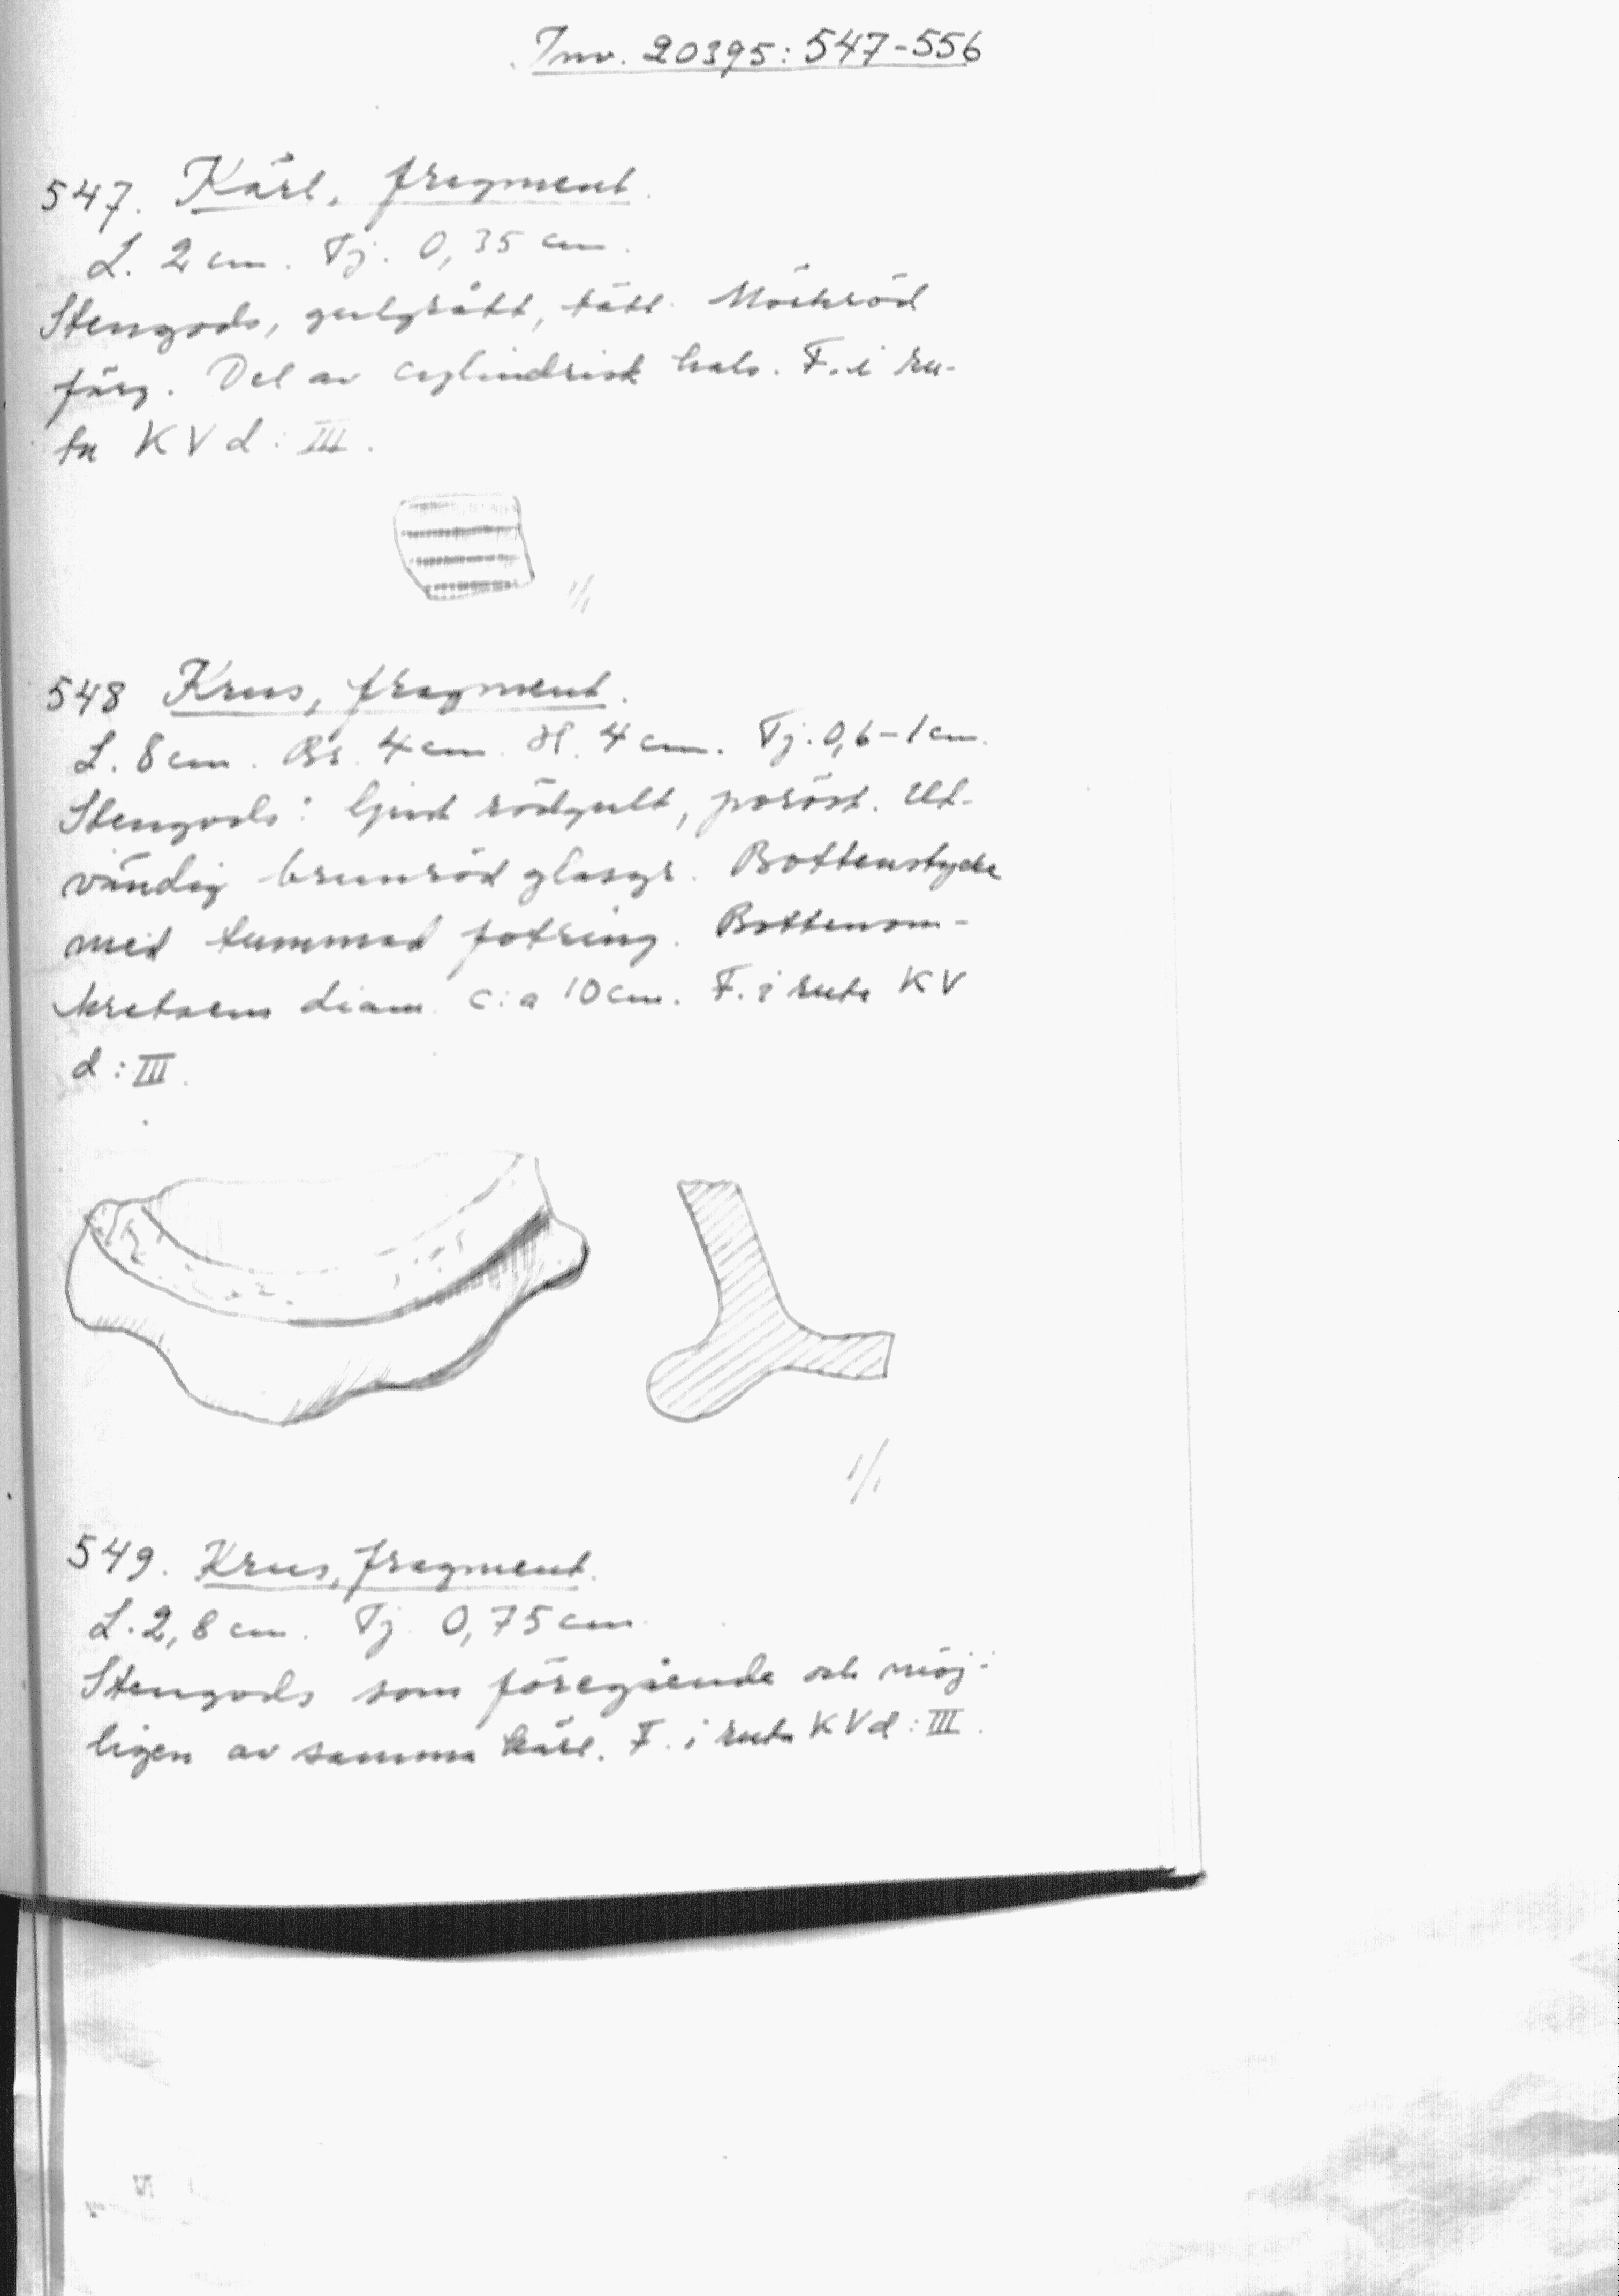 Inv. 20395:547-556
547. Kärl, fragment.
L. 2 cm. Tj. 0,35 cm.
Stengods, gulgrått, tätt. Mörkröd
färg. Del av cylindrisk hals. F. i ru-
ta KV d: III.
1/1
548 Krus, fragment.
L. 8 cm. Br. 4 cm. H. 4 cm. Tj. 0,6-1 cm.
Stengods: ljust rödgult, poröst. Ut-
vändig brunröd glasyr. Bottenstycke
med tummad fotring. Bottenom-
kretsens diam. c:a 10 cm. F. i ruta KV
d: III.
1/1
549. Krus, fragment.
L. 2,8 cm. Tj. 0,75 cm.
Stengods som föregående och möj-
ligen av samma kärl. F. i ruta KV d: III.